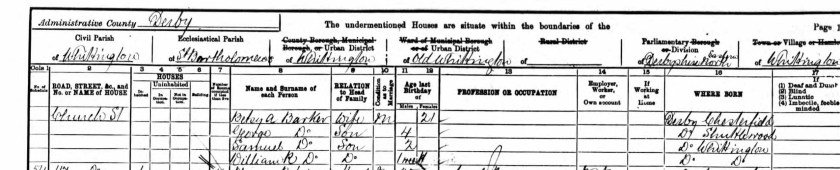 Administrative County Derby The undermentioned Houses are situate within the boundaries of the Page 1
Civil Parish Ecclesiastical Parish County Borough, Municipal Borough, or Urban District Ward of Municipal Borough or of Urban District Rural District Parliamentary Borough or Division Town or Village or
of Whittington of St Bartholomew of Whittington of Old Whittington of of Derbyshire North Eastern of Whittington
Cols 1 2 3 4 5 6 7 8 9 10 11 12 13 14 15 16 17
No. of Schedule ROAD, STREET, &c., and No. or NAME of HOUSE HOUSES Inhabited Uninhabited In Occupation Not in Occupation Building Name and Surname of each Person RELATION to Head of Family Condition as to Marriage Age last Birthday of Males Females PROFESSION OR OCCUPATION Employer, Worker, or Own account If Working at Home WHERE BORN (1) Deaf and Dumb (2) Blind (3) Lunatic (4) Imbecile, feeble minded
Church St Betsy A. Barker Wife M 21 Derby Chesterfield
George Do Son 4 Do Shuttlewood
Samuel Do Son 2 Do Whittington
William R Do Do 1 mth Do Do